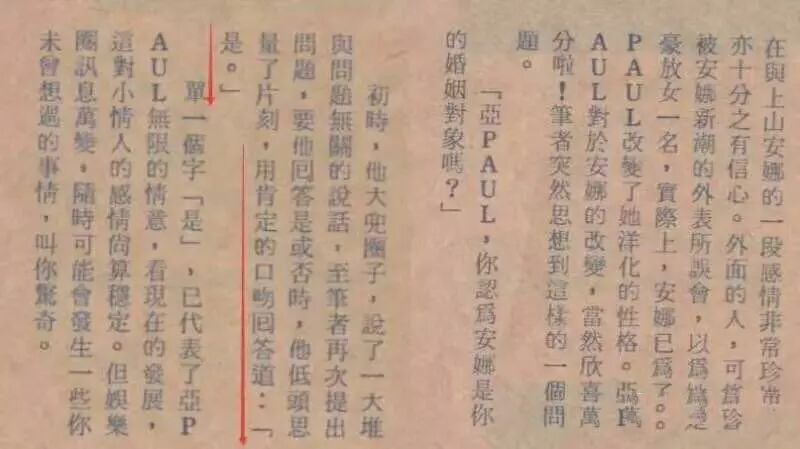 在與上山安娜的一段感情非常珍常
亦十分之有信心。外面的人，可
被安娜新潮的外表所誤會，以爲
豪放女一名，實際上，安娜已爲了
PAUL改變了她洋化的性格。亞P
AUL對於安娜的改變，當然欣喜萬
分啦！筆者突然思想到這樣的一個問
題。
「亞PAUL，你認爲安娜是你
的婚姻對象嗎？」
初時，他大兜圈子，說了一大堆
與問題無關的說話，至筆者再次提出
問題，要他回答是或否時，他低頭思
量了片刻，用肯定的口吻回答道：「
是。」
單一個字「是」，已代表了亞P
AUL無限的情意，看現在的發展，
這對小情人的感情尙算穩定。但娛樂
圈訊息萬變，隨時可能會發生一些你
未曾想過的事情，叫你驚奇。